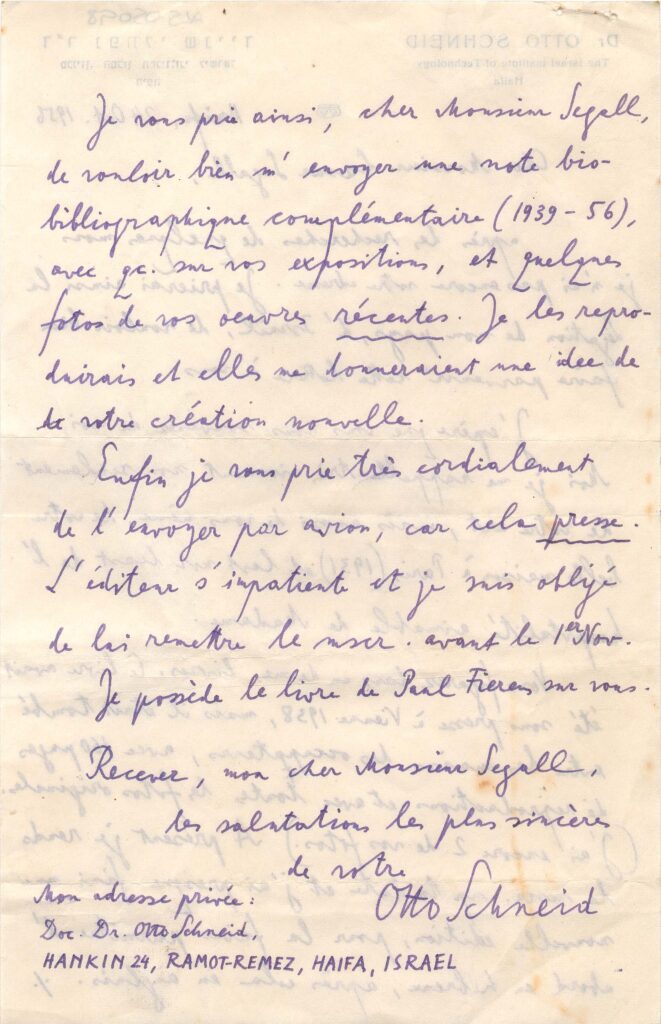 Je vous prie ainsi, cher Monsieur Segall,
de vouloir bien m'envoyer une note bio-
bibliographique complémentaire (1939-56),
avec qc. sur vos expositions, et quelques
fotos de vos oeuvres récentes. Je les repro-
duirais et elles me donneraient une idee de
votre création nouvelle.
Enfin je vous prie très cordialement
de l'envoyer par avion, car cela presse.
L'éditeur s'impatiente et je suis obligé
de lui remettre le mscr. avant le 1er Nov.
Je possède le livre de Paul Fierens sur vous.
Recever, mon cher Monsieur Segall,
les salutations les plus sincères
de votre
Otto Schneid
Mon adresse privée:
Doc. Dr. Otto Schneid,
HANKIN 24, RAMOT-REMEZ, HAIFA, ISRAEL